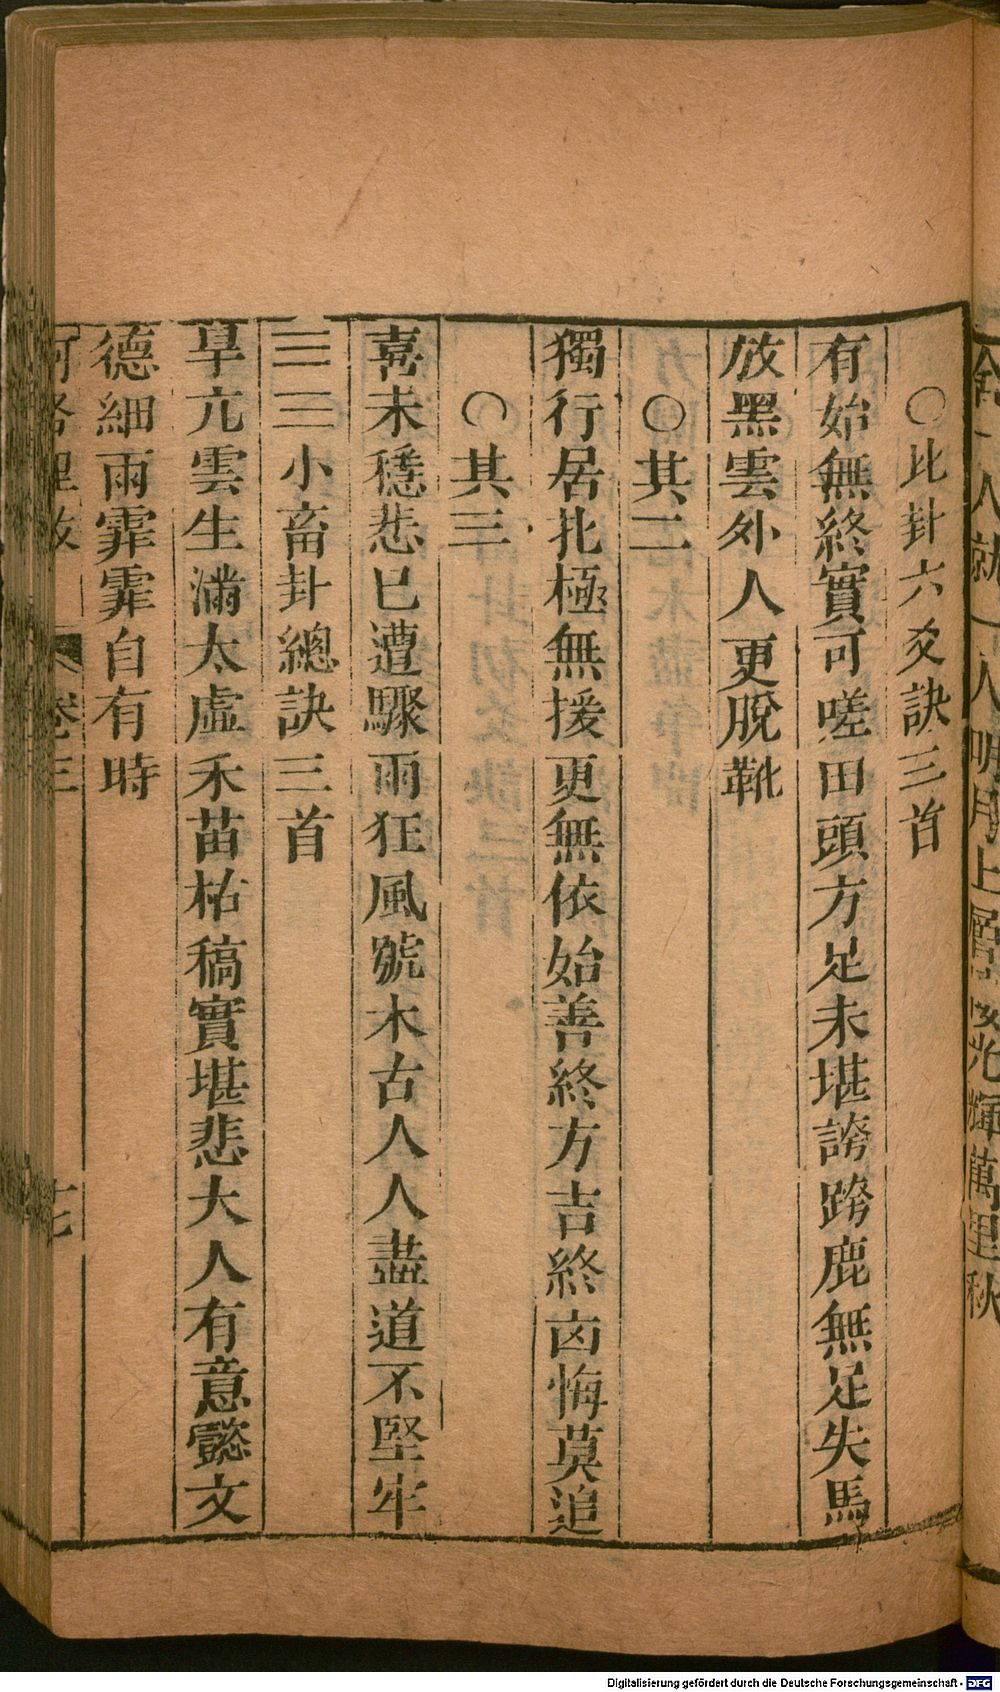 ○比卦六爻訣三首
有始無終實可嗟田頭方足未堪誇跨鹿無足失馬
放黑雲外人更脫靴
○其二
獨行居北極無援更無依始善終方吉終凶悔莫追
○其三
喜未穩悲已遭驟雨狂風號木古人人盡道不堅牢
三三小畜卦總訣三首
旱亢雲生滿太虛禾苗枯稿實堪悲大人有意懿文
德細雨霏霏自有時
卷三
Digitalisierung gefördert durch die Deutsche Forschungsgemeinschaft - DFG